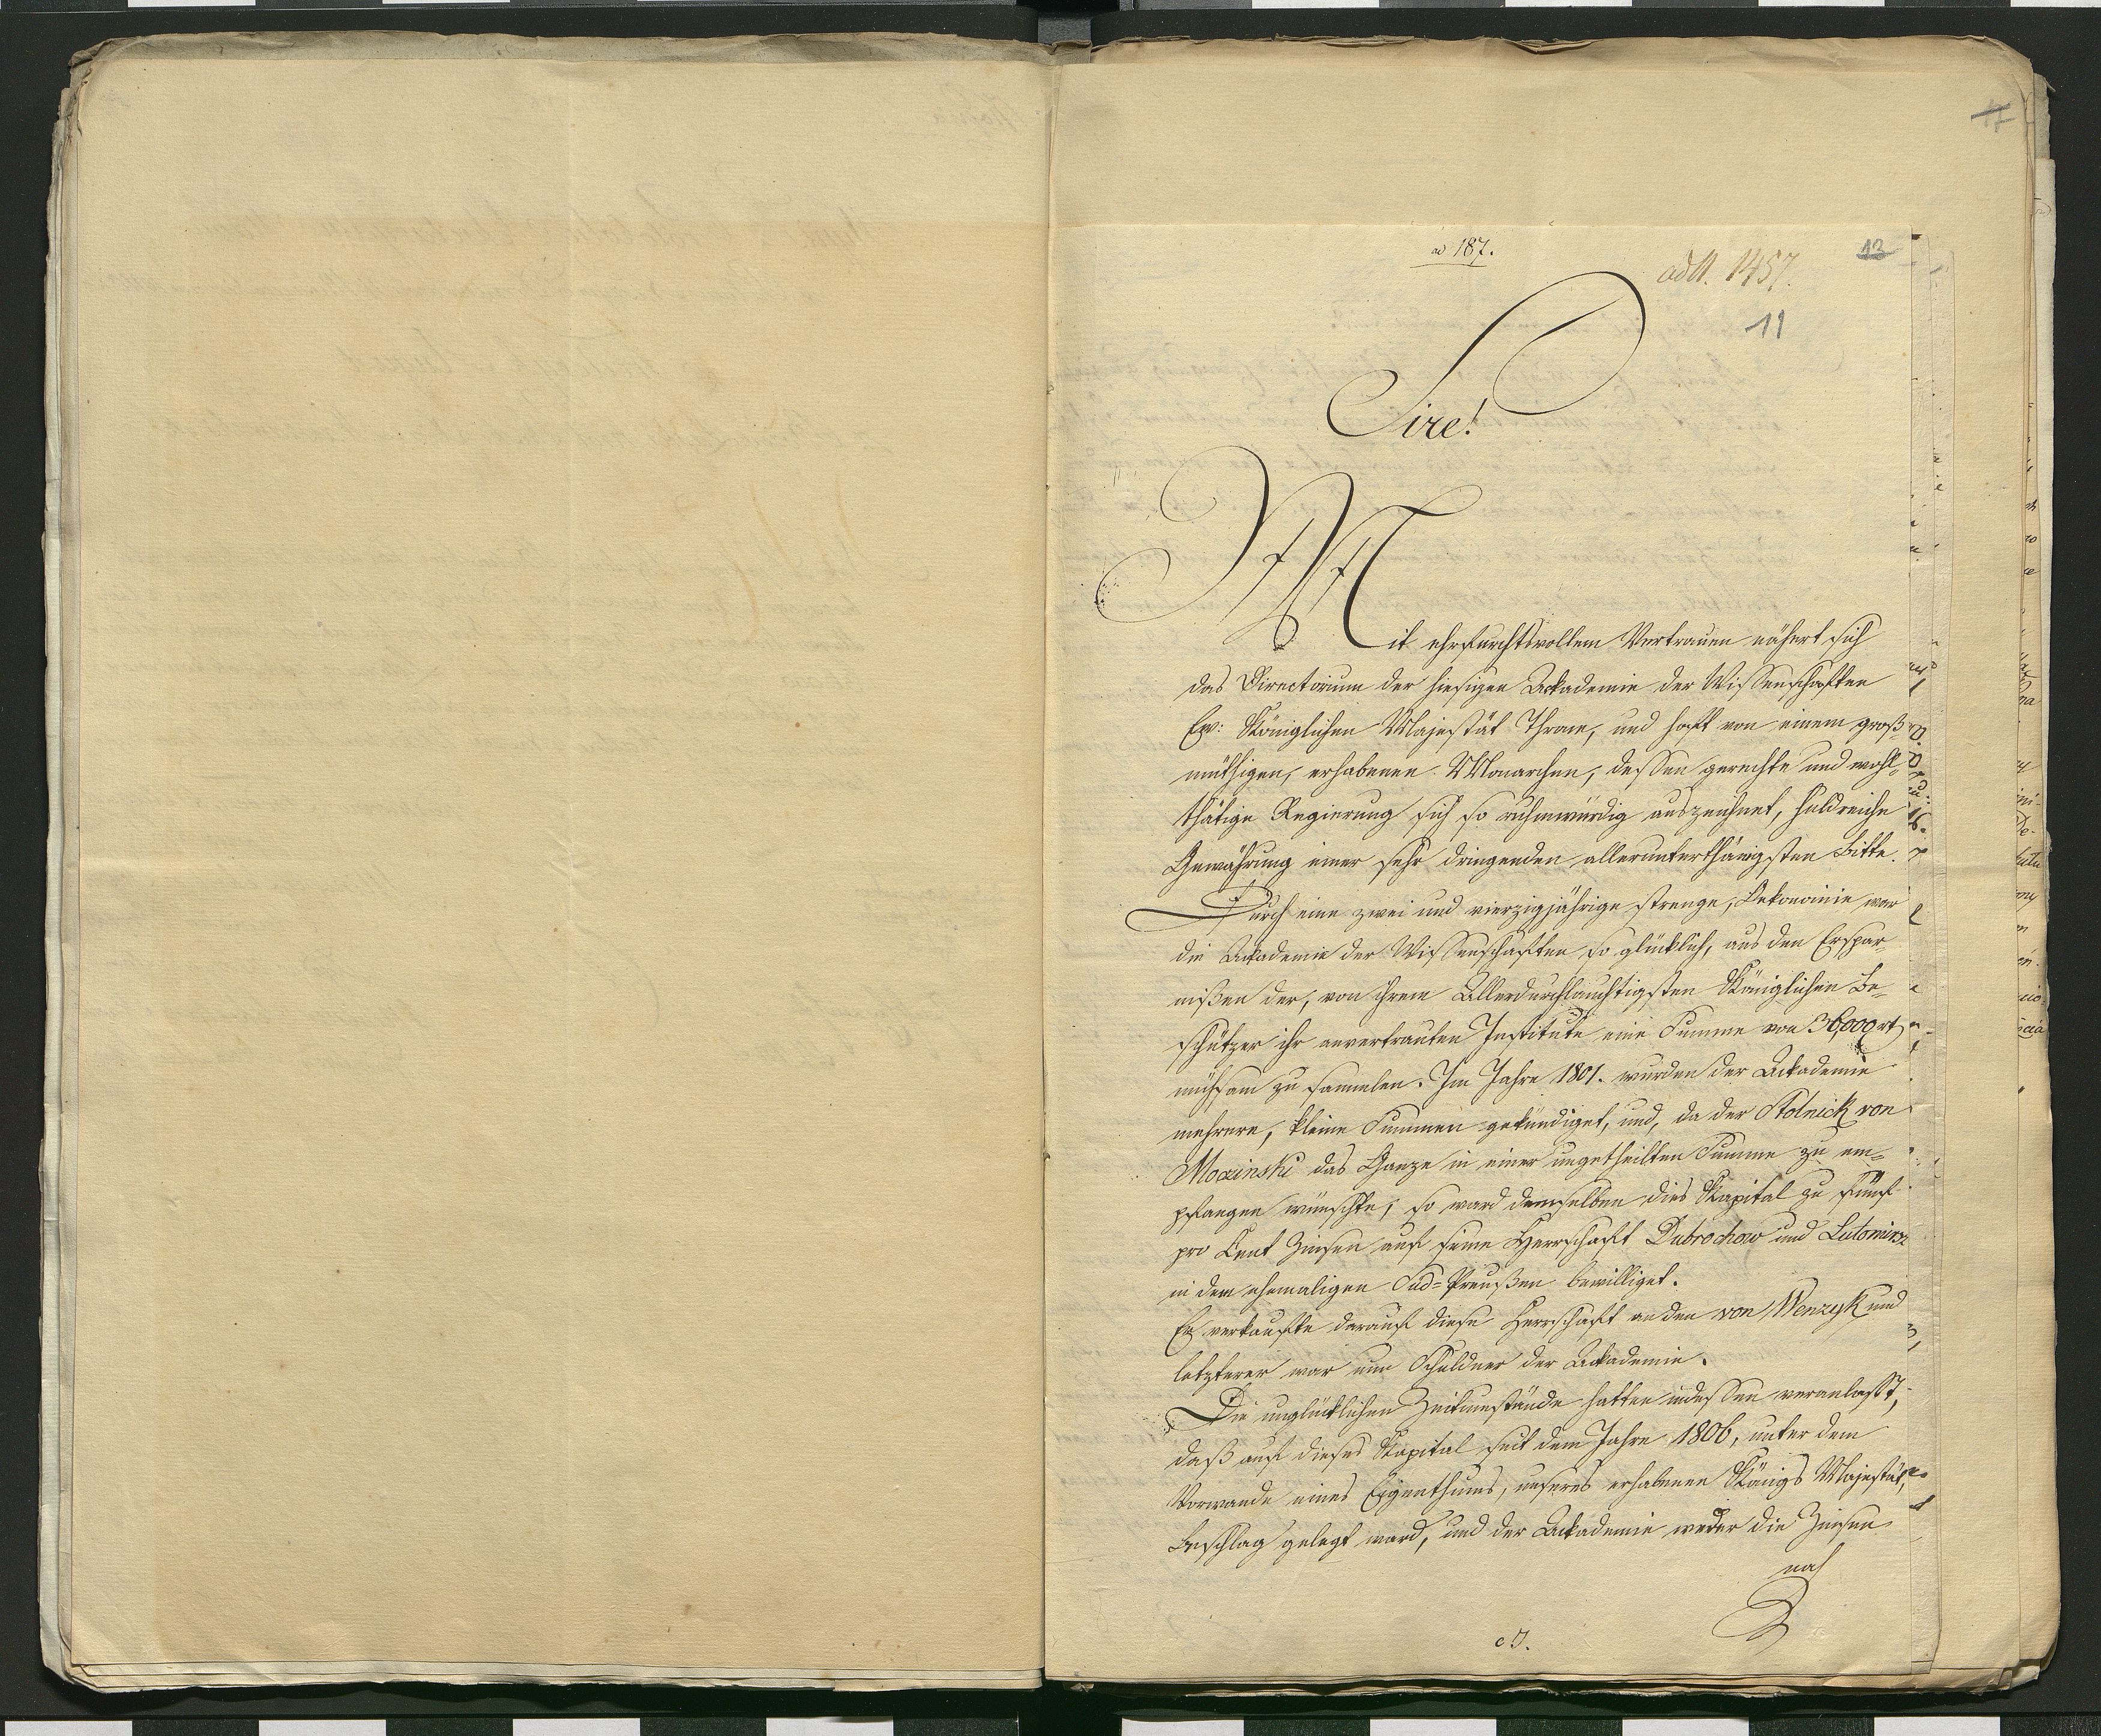 17
ad 187.
13
ad N. 1457.
11
Sire!
Mit ehrfurchtsvollem Vertrauen nähert sich
das Directorium der hiesigen Ackademie der Wissenschaften
Ew: Königlichen Majestät Throne, und hofft von einem groß-
müthigen, erhabenen Monarchen, dessen gerechte und wohl-
thätige Regierung sich so ruhmwürdig auszeichnet, huldreiche
Gewährung einer sehr dringenden allerunterthänigsten Bitte.
Durch eine zwei und vierzigjährige strenge, Oekonomie war
die Ackademie der Wissenschaften so glücklich, aus den Erspar-
nißen der, von ihrem Allerdurchlauchtigsten Königlichen Be-
schützer ihr anvertrauten Institute eine Summe von 36,000 rt
mühsam zu sammlen. Im Jahre 1801. wurden der Ackademie
mehrere, kleine Summen gekündiget, und, da der Stolnick von
Moczinski das Ganze in einer ungetheilten Summe zu em-
pfangen wünschte, so ward demselben dies Kapital zu fünf
pro Cent Zinsen auf seine Herrschaft Dubrochow und Lutomirsz
in dem ehemaligen Süd-Preußen bewilliget.
Er verkaufte darauf diese Herrschaft an den von Wenzyk und
letzterer war nun Schuldner der Ackademie.
Die unglücklichen Zeitumstände hatten indessen veranlaßt,
daß auf dieses Kapital seit dem Jahre 1806, unter dem
Vorwande eines Eigenthums, unseres erhabenen Königs Majestät,
Beschlag gelegt ward, und der Ackademie weder die Zinsen
noch